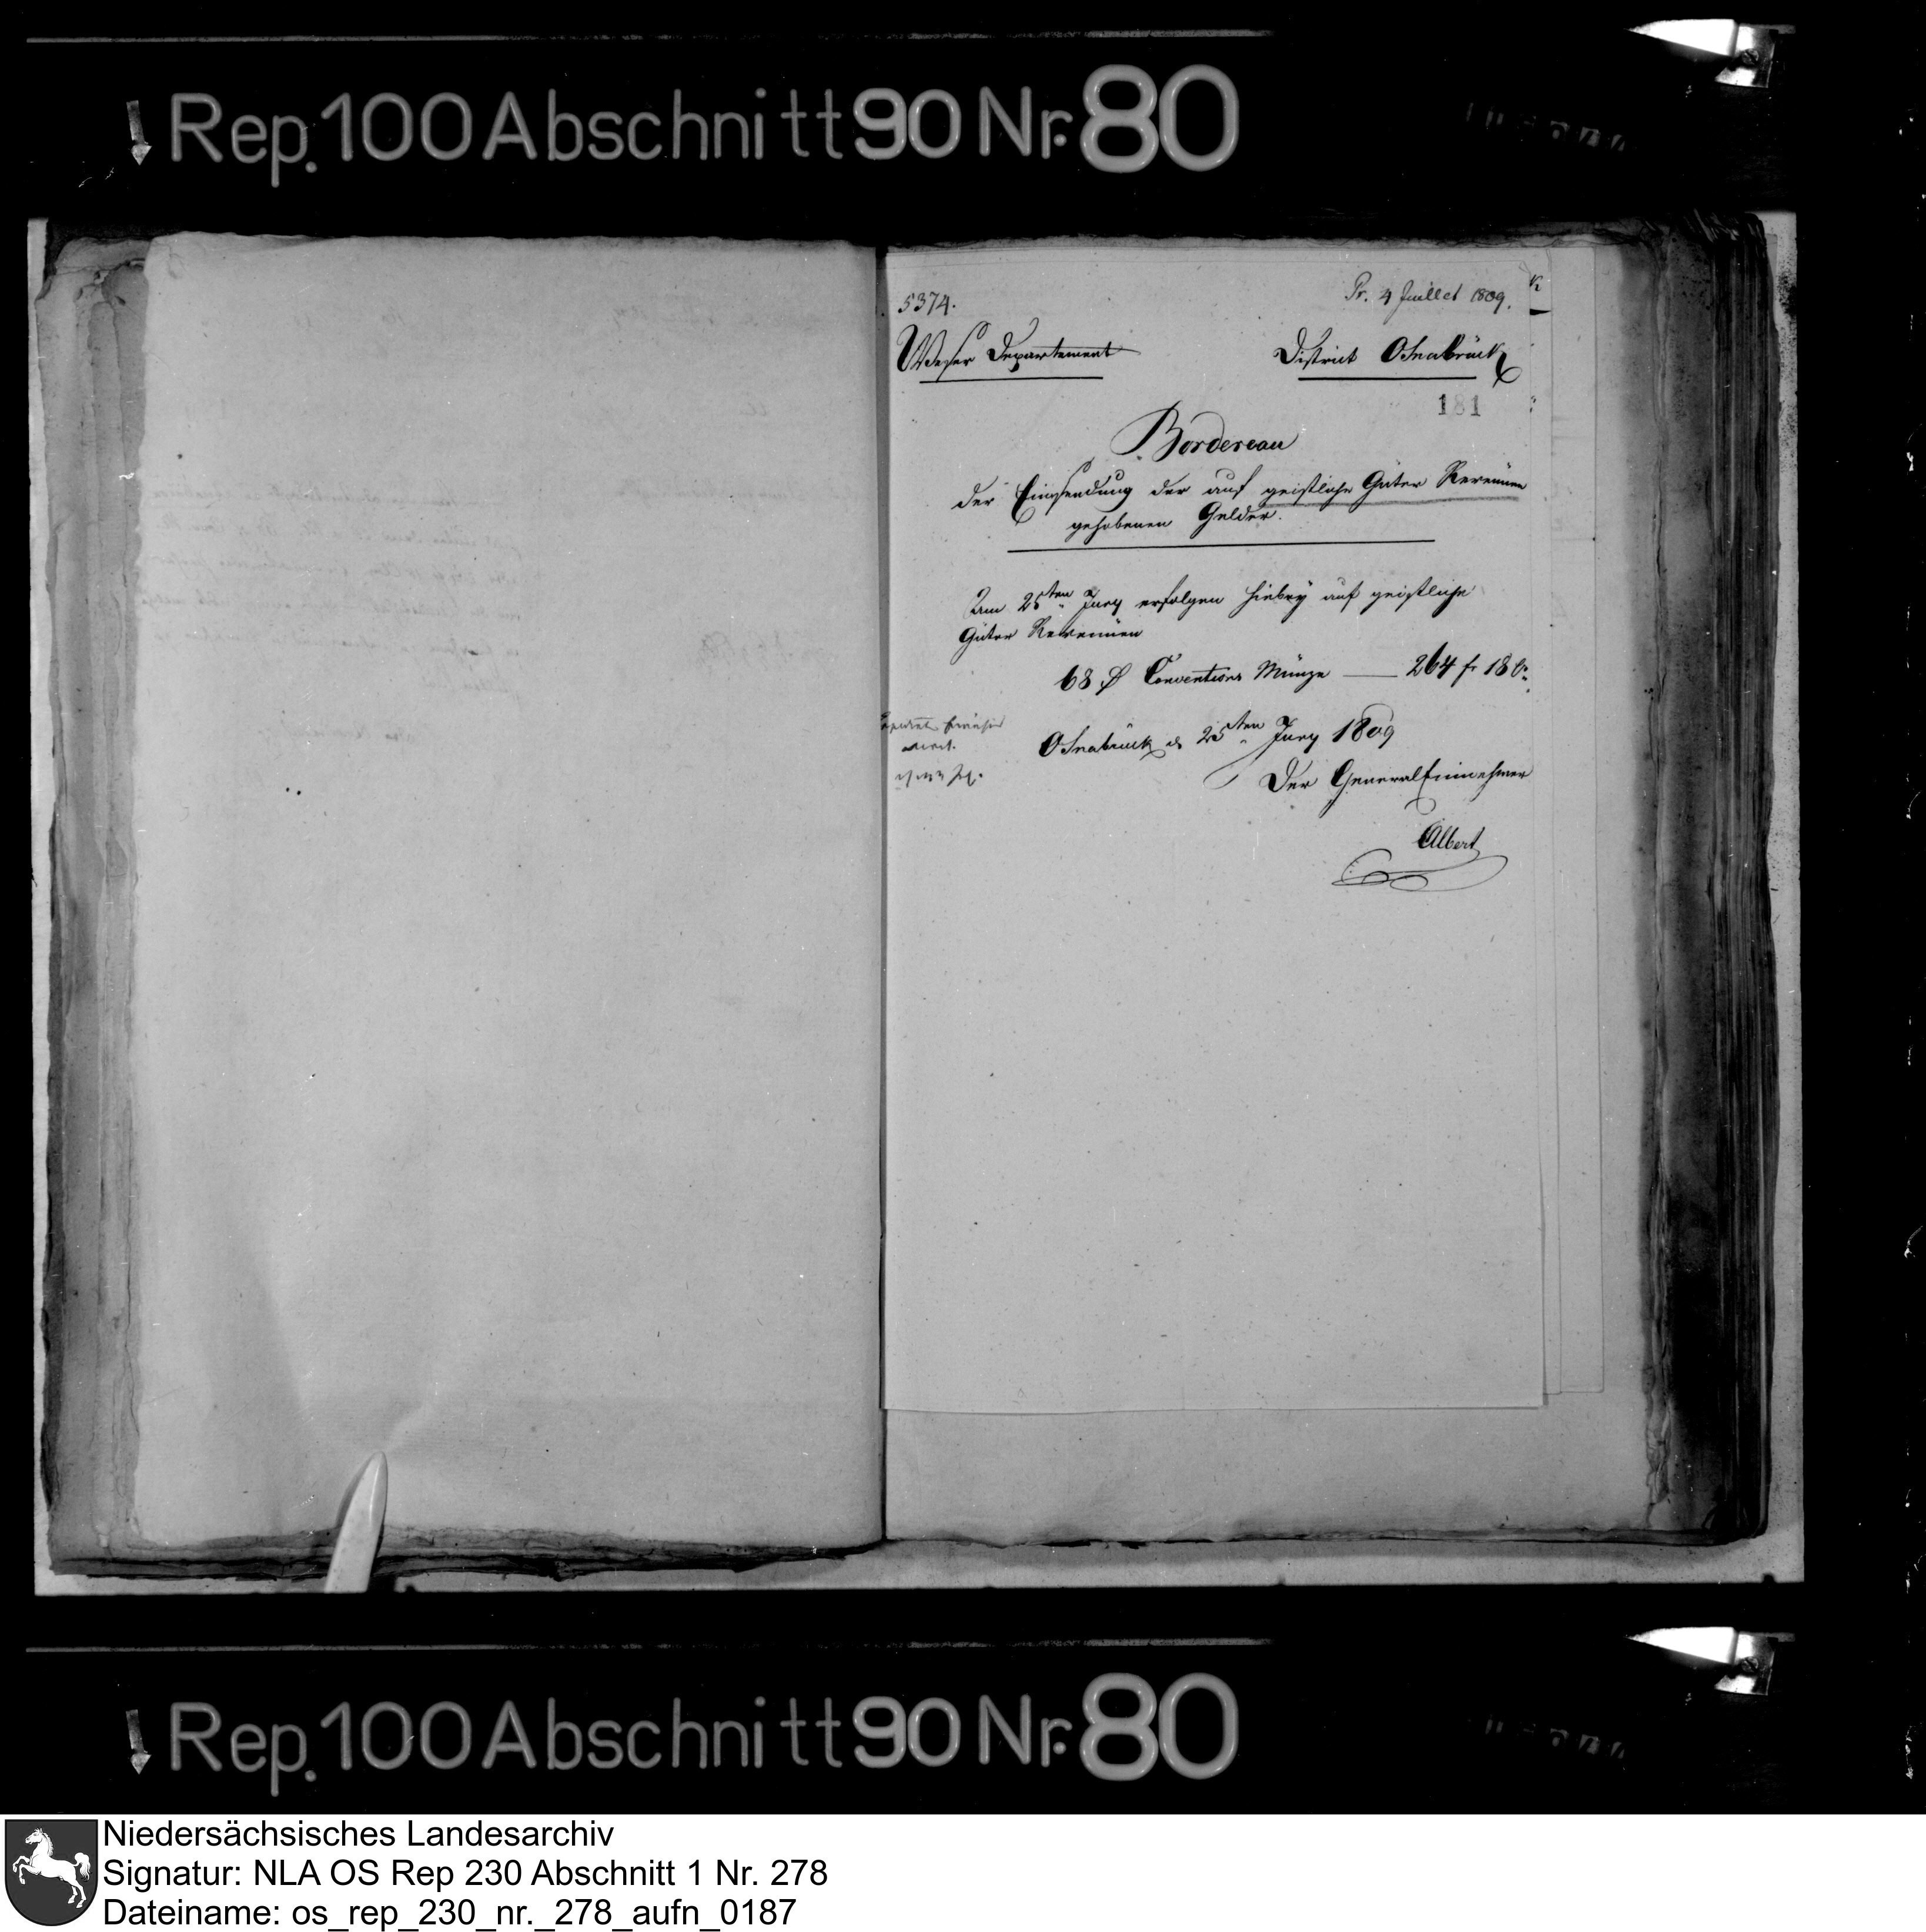 Rep. 100 Abschnitt 90 Nr. 80
5374.
Pr. 4 Juillet 1809.
Weser Departement
District Osnabrück
181
Bordereau
der Einsendung der auf geistliche Güter Revenüen
gehobenen Gelder.
Am 25ten Juny erfolgen hiebey auf geistliche
Güter Revenüen
68 Conventions Münze — 264 fr 18
Osnabrück d 25ten Juny 1809
Der GeneralEinnehmer
Albert
Rep. 100 Abschnitt 90 Nr. 80
Niedersächsisches Landesarchiv
Signatur: NLA OS Rep 230 Abschnitt 1 Nr. 278
Dateiname: os_rep_230_nr._278_aufn_0187